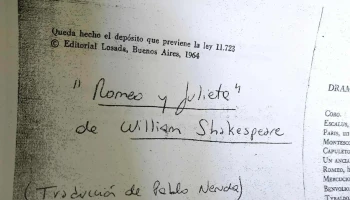 Queda hecho el depósito que previene la ley 11.723
© Editorial Losada, Buenos Aires, 1964
"Romeo y Julieta"
de William Shakespeare
(Traducción de Pablo Neruda)
DRAM
CORO.
ESCALUS,
PARIS, un
MONTESCO
CAPULETO
UN ANCIA
ROMEO, h
MERCUCIO
BENVOLIO
TYBALDO